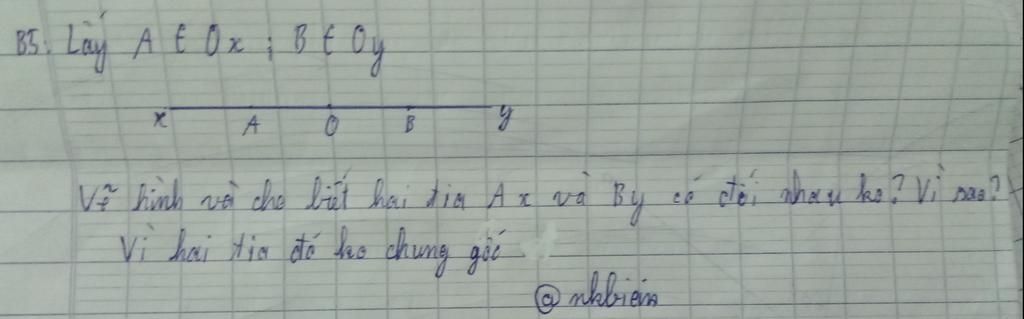 B5. Lấy A ∈ Ox ; B ∈ Oy
x A O B y
Vẽ hình và cho biết hai tia Ax và By có đối nhau ko? Vì sao?
Vì hai tia đó ko chung gốc
@nkbiên